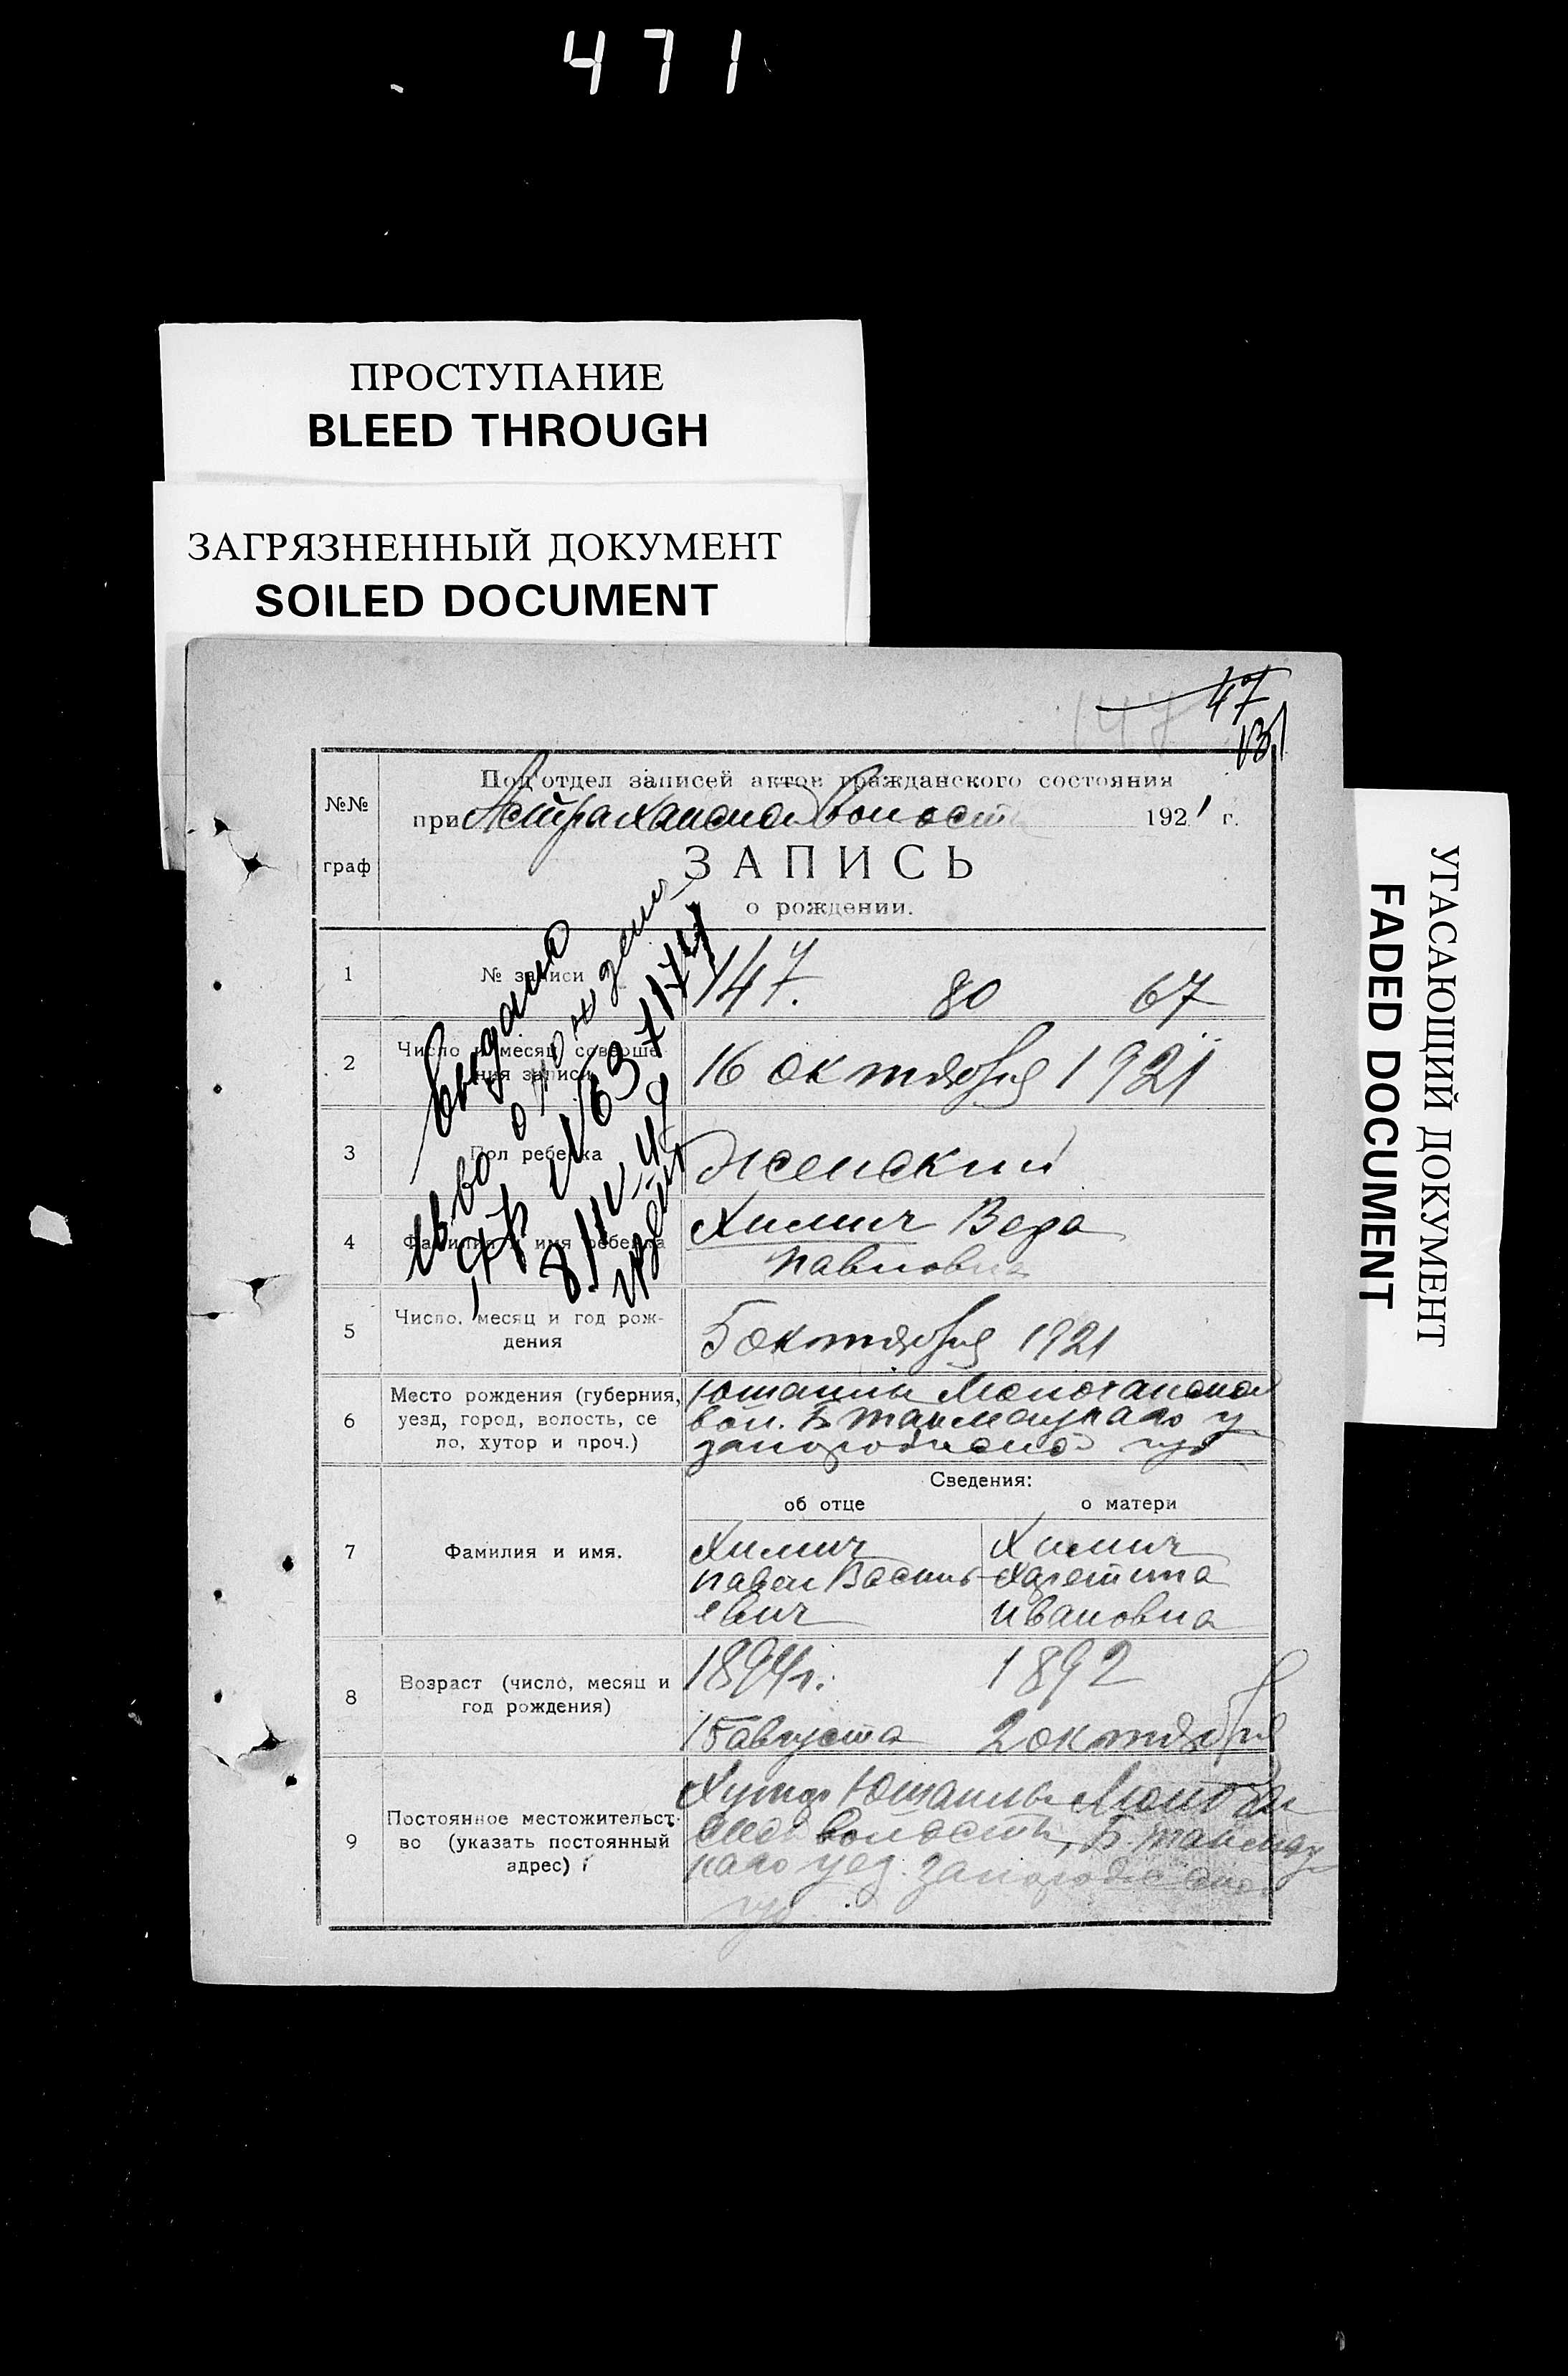 471
ПРОСТУПАНИЕ
BLEED THROUGH
ЗАГРЯЗНЕННЫЙ ДОКУМЕНТ
SOILED DOCUMENT
УГАСАЮЩИЙ ДОКУМЕНТ
FADED DOCUMENT
147 47
131
№№
граф
Подотдел записей актов гражданского состояния
при Астраханской Волости 1921 г.
ЗАПИСЬ
о рождении.
1 № записи 147. 80 67
2 Число и месяц соверше
ния записи 16 октября 1921
3 Пол ребенка Женский
4 Фамилия и имя ребенка Химич Вера
Павловна
выдано
св во о рождении
8/IV-49
5 Число, месяц и год рож-
дения 5 октября 1921
6 Место рождения (губерния,
уезд, город, волость, се
ло, хутор и проч.)
вол. Б Токмацкаго у
Сведения:
об отце о матери
7 Фамилия и имя.
Химич Химич
Павел Василь
евич Ивановна
8 Возраст (число, месяц и
год рождения)
1894г. 1892
15 августа 2 октября
9 Постоянное местожительст-
во (указать постоянный
адрес)
Хутор
волости, Б. Токмац
каго уез.
губ